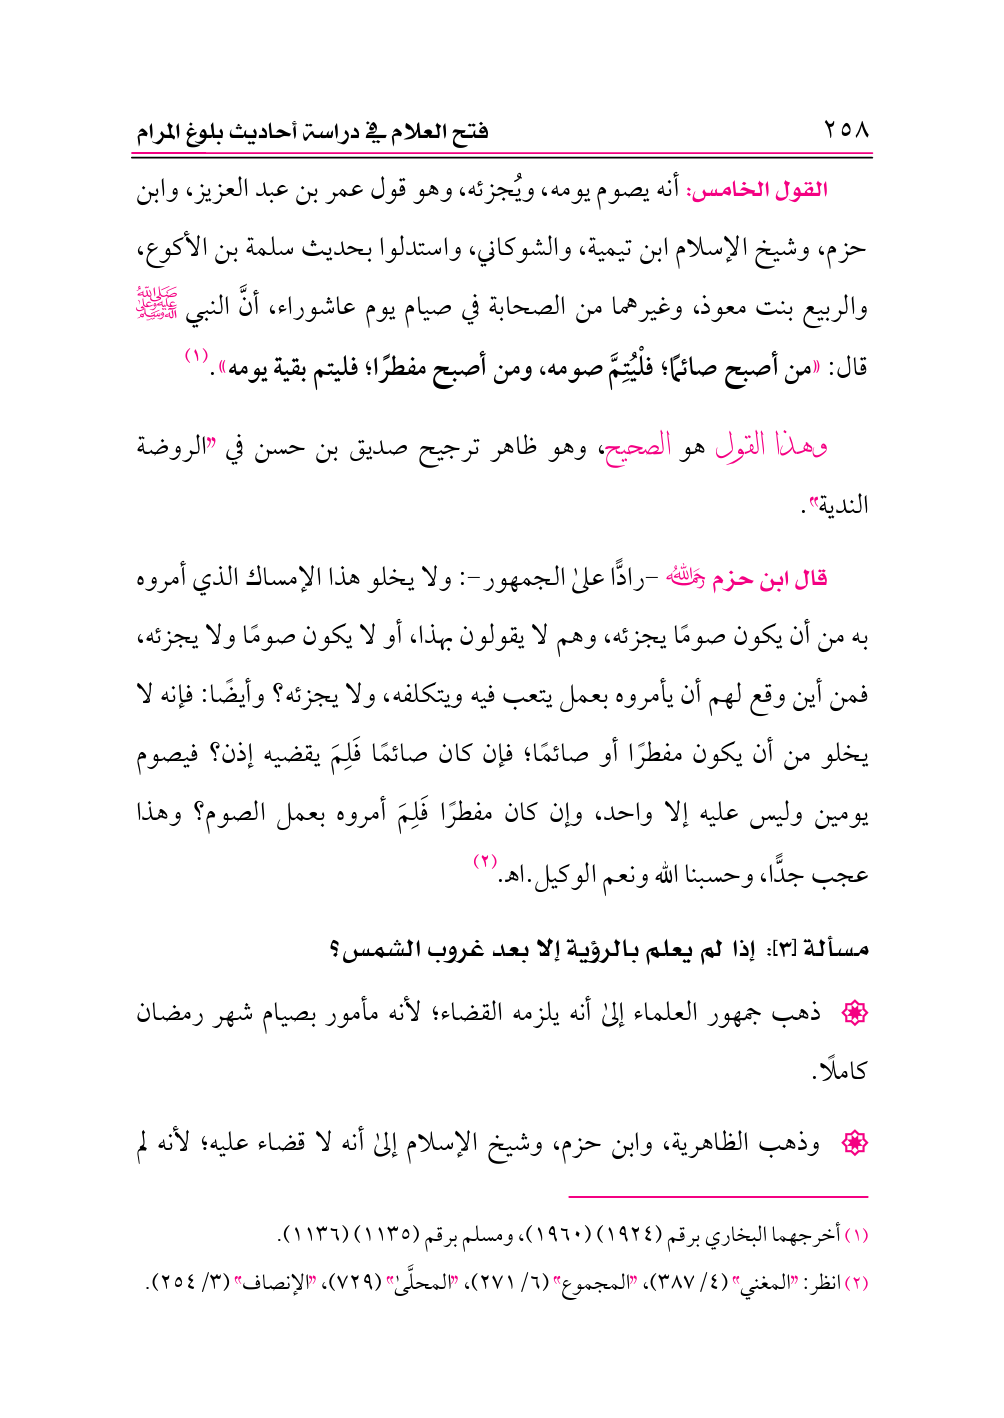 ٢٥٨ فتح العلام في دراسة أحاديث بلوغ المرام
القول الخامس: أنه يصوم يومه، ويُجزئه، وهو قول عمر بن عبد العزيز، وابن
حزم، وشيخ الإسلام ابن تيمية، والشوكاني، واستدلوا بحديث سلمة بن الأكوع،
والربيع بنت معوذ، وغيرهما من الصحابة في صيام يوم عاشوراء، أنَّ النبي ﷺ
قال: «من أصبح صائمًا؛ فلْيُتِمَّ صومه، ومن أصبح مفطرًا؛ فليتم بقية يومه».(١)
وهذا القول هو الصحيح، وهو ظاهر ترجيح صديق بن حسن في "الروضة
الندية".
قال ابن حزم رَحِمَهُ اللهُ -رادًّا علىٰ الجمهور-: ولا يخلو هذا الإمساك الذي أمروه
به من أن يكون صومًا يجزئه، وهم لا يقولون بهذا، أو لا يكون صومًا ولا يجزئه،
فمن أين وقع لهم أن يأمروه بعمل يتعب فيه ويتكلفه، ولا يجزئه؟ وأيضًا: فإنه لا
يخلو من أن يكون مفطرًا أو صائمًا؛ فإن كان صائمًا فَلِمَ يقضيه إذن؟ فيصوم
يومين وليس عليه إلا واحد، وإن كان مفطرًا فَلِمَ أمروه بعمل الصوم؟ وهذا
عجب جدًّا، وحسبنا الله ونعم الوكيل.اهـ.(٢)
مسألة [٣]: إذا لم يعلم بالرؤية إلا بعد غروب الشمس؟
ذهب جمهور العلماء إلىٰ أنه يلزمه القضاء؛ لأنه مأمور بصيام شهر رمضان
كاملًا.
وذهب الظاهرية، وابن حزم، وشيخ الإسلام إلىٰ أنه لا قضاء عليه؛ لأنه لم
(١) أخرجهما البخاري برقم (١٩٢٤) (١٩٦٠)، ومسلم برقم (١١٣٥) (١١٣٦).
(٢) انظر: "المغني" (٤/ ٣٨٧)، "المجموع" (٦/ ٢٧١)، "المحلَّىٰ" (٧٢٩)، "الإنصاف" (٣/ ٢٥٤).